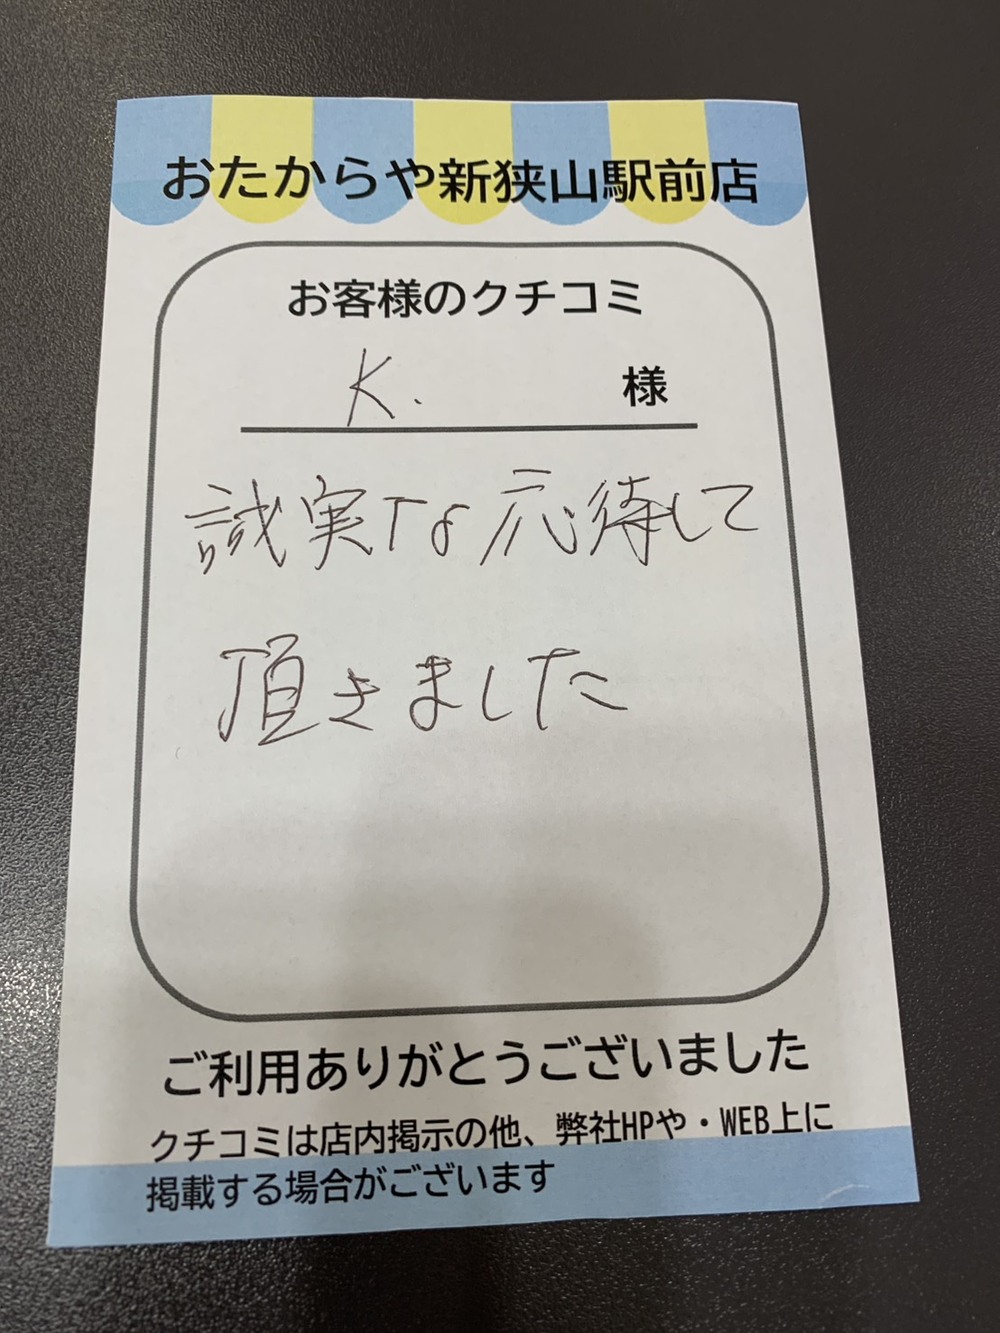 おたからや新狭山駅前店
お客様のクチコミ
K. 様
誠実な応待して
頂きました
ご利用ありがとうございました
クチコミは店内掲示の他、弊社HPや・WEB上に
掲載する場合がございます